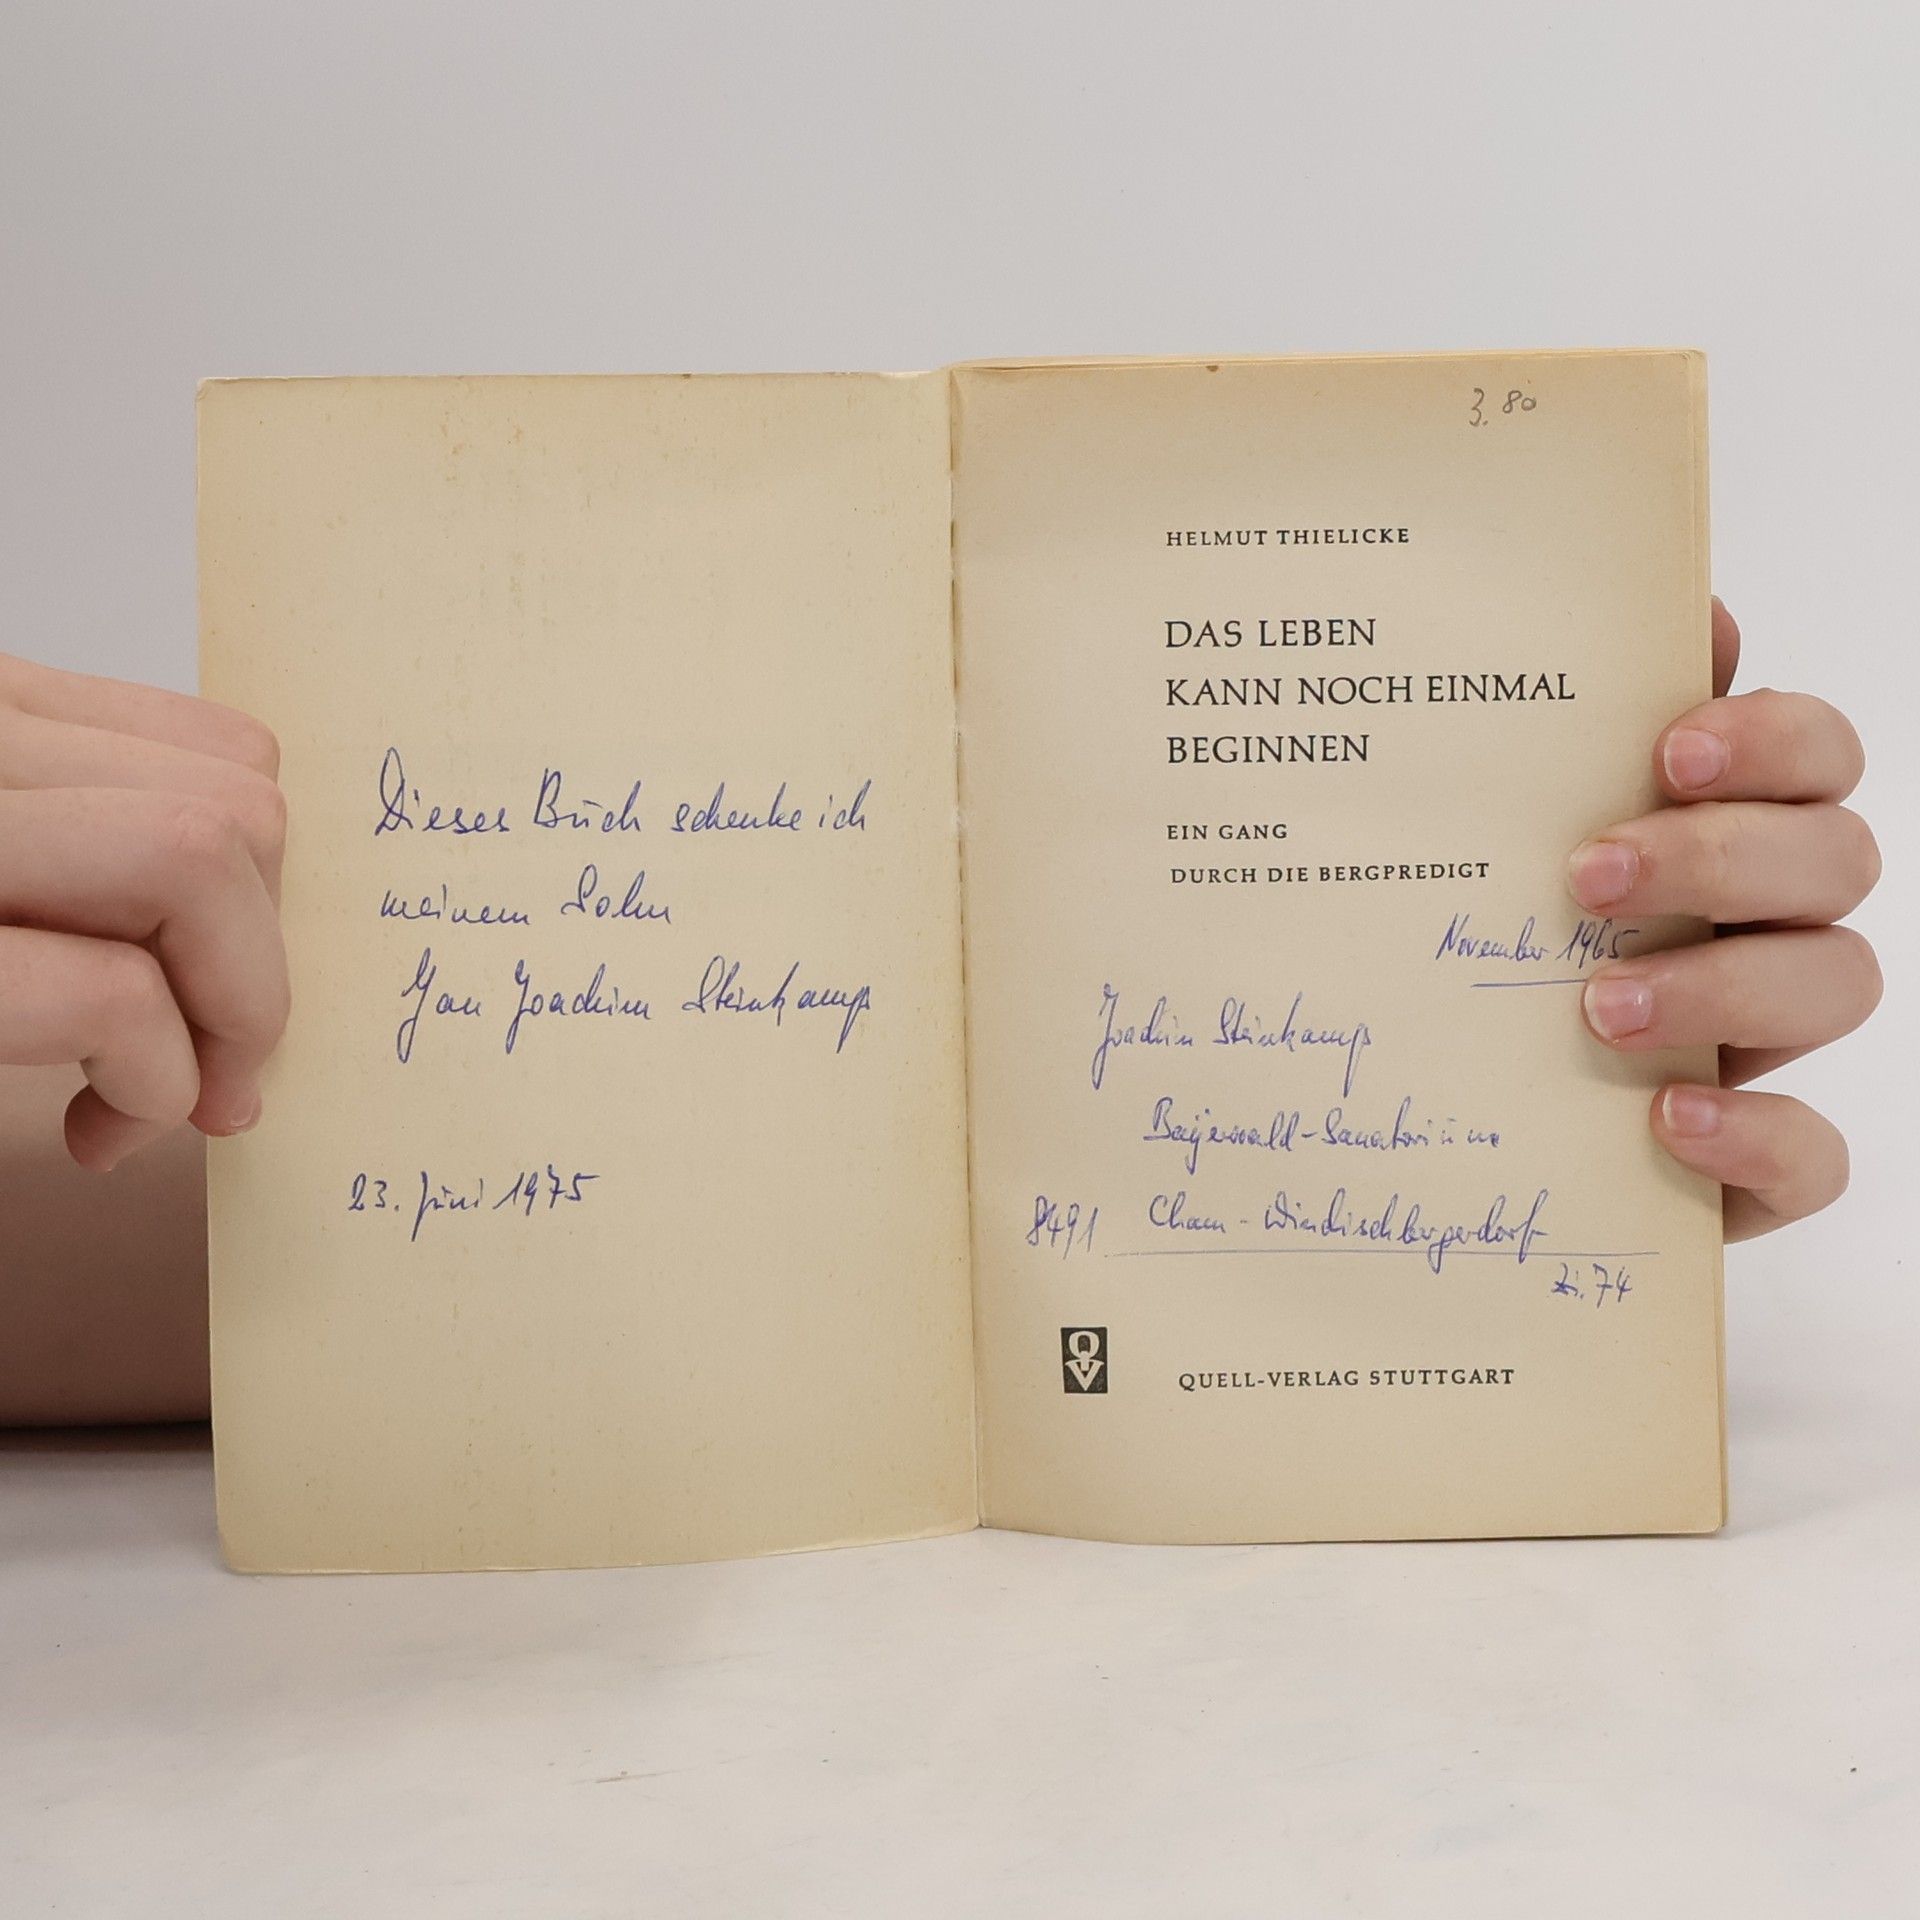 Dieses Buch schenke ich
meinem Sohn
Jan Joachim Steinkamp
23. Juni 1975
3.80
HELMUT THIELICKE
DAS LEBEN
KANN NOCH EINMAL
BEGINNEN
EIN GANG
DURCH DIE BERGPREDIGT
November 1965
Joachim Steinkamp
Bayerwald-Sanatorium
8491 Cham-Windischbergerdorf
Zi. 74
QV
QUELL-VERLAG STUTTGART